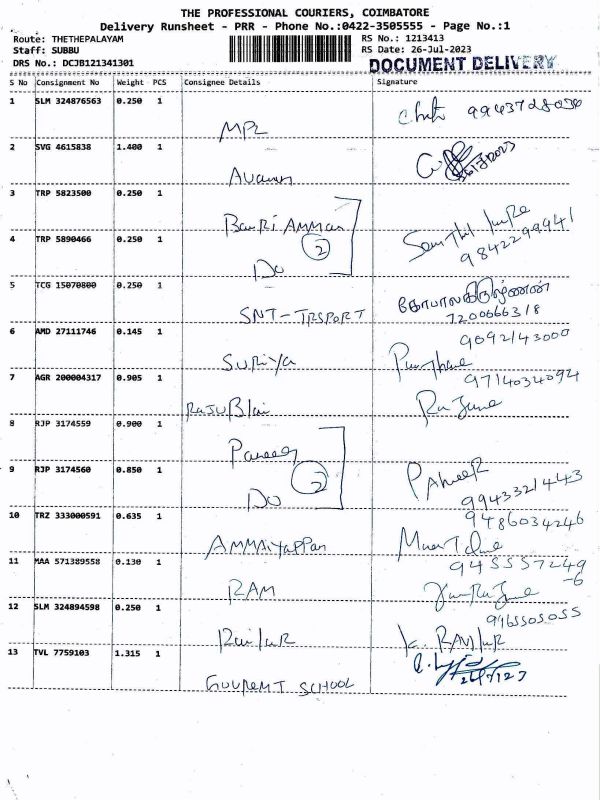 THE PROFESSIONAL COURIERS, COIMBATORE
Delivery Runsheet - PRR - Phone No.:0422-3505555 - Page No.:1
Route: THETHEPALAYAM
Staff: SUBBU
DRS No.: DCJB121341301
RS No.: 1213413
RS Date: 26-Jul-2023
DOCUMENT DELIVERY
S No Consignment No Weight PCS Consignee Details Signature
1 SLM 324876563 0.250 1
MPL
2 SVG 4615838 1.400 1
3 TRP 5823500 0.250 1
BanRi AMMan
4 TRP 5890466 0.250 1
2
Do
9842299941
5 TCG 15070800 0.250 1
SNT-TRSPORT
கோபாலகிருஷ்ணன்
7200666318
6 AMD 27111746 0.145 1
SuRiya
9092143000
7 AGR 200004317 0.905 1
9714034094
8 RJP 3174559 0.900 1
9 RJP 3174560 0.850 1
Do 2
9943321443
10 TRZ 333000591 0.635 1
AMMAiyappan
9486034246
11 MAA 571389558 0.130 1
RAM
12 SLM 324894598 0.250 1
9965505055
13 TVL 7759103 1.315 1
SCHOOL